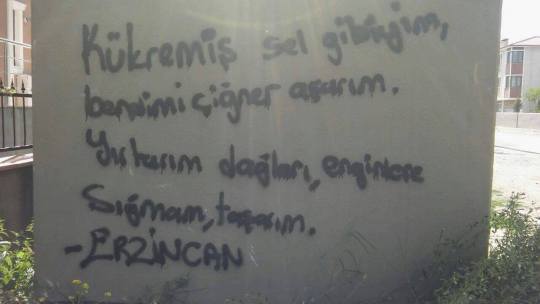 Kükremiş sel gibiyim,
bendimi çiğner aşarım.
Yırtarım dağları, enginlere
Sığmam, taşarım.
-ERZİNCAN